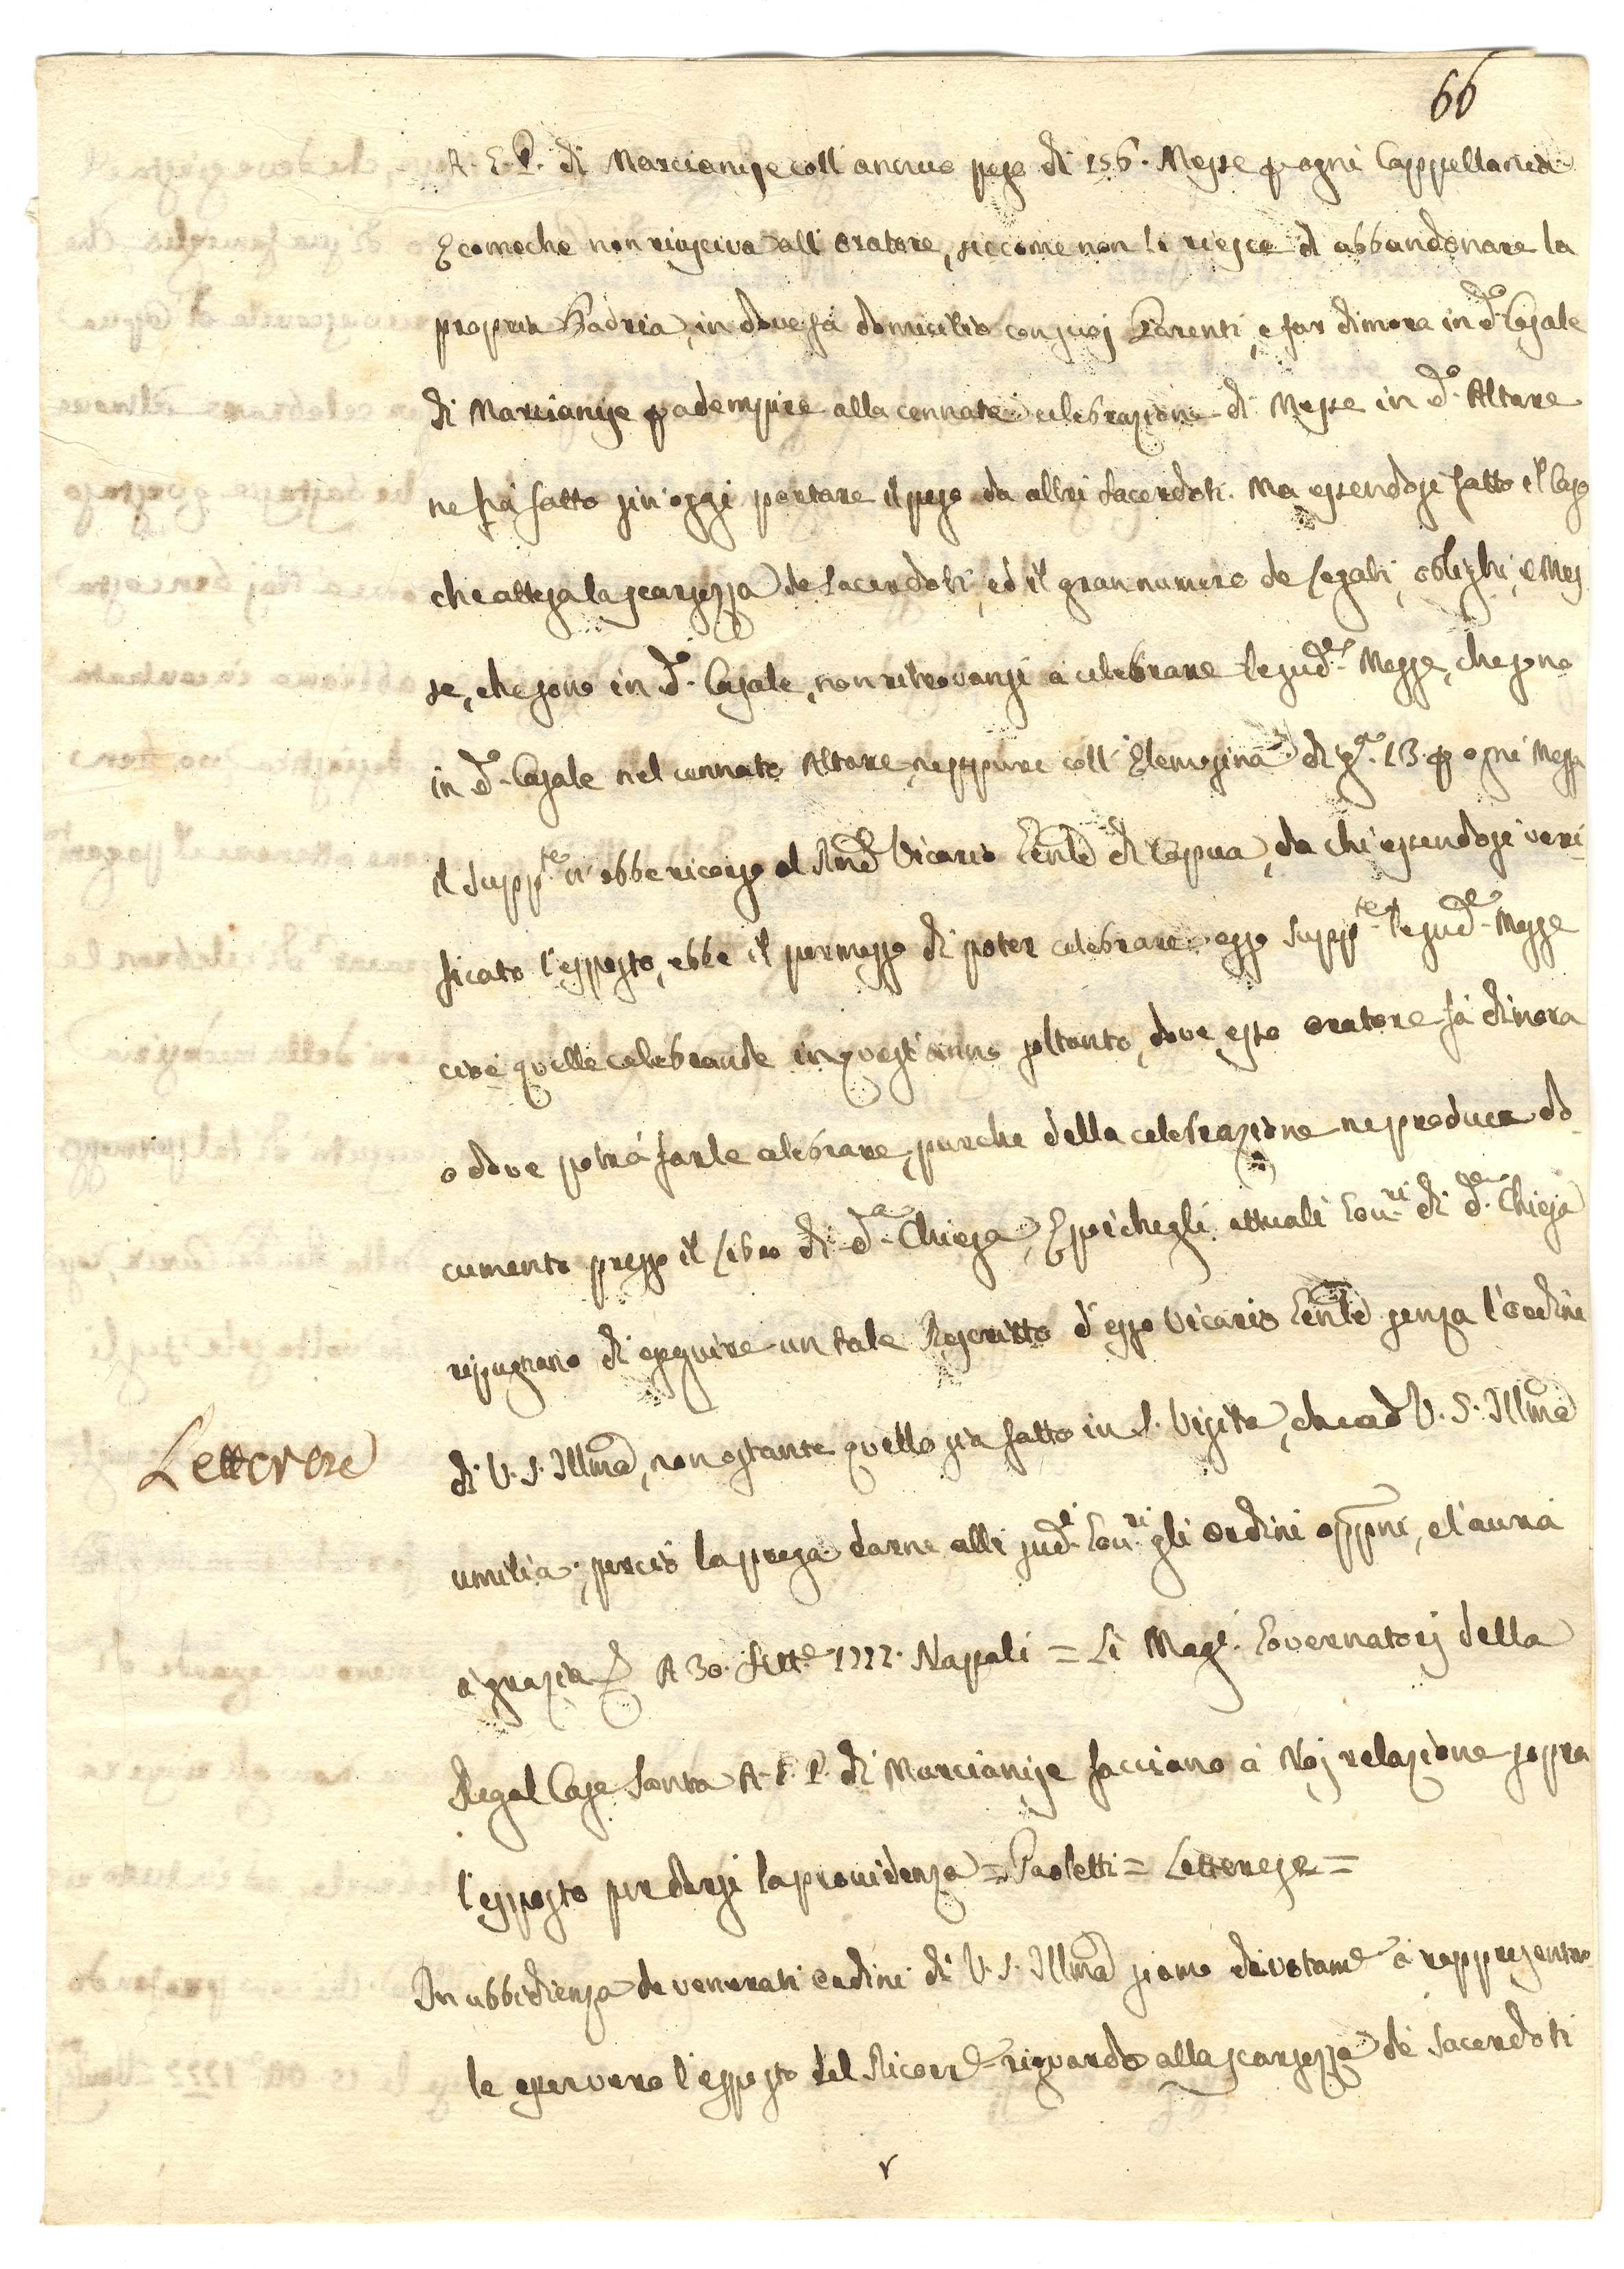 66
A. G. P. di Marcianise coll'annuo peso di 156. Messe p ogni Cappellania
E comeche non riusciva all'oratore, siccome non li riesce d'abbandonare la
propria Padria, in dove fà domicilio con suoj Parenti, e far dimora in d.º Casale
di Marcianise p adempire alla cennata celebrazione di Messe in d.º Altare
ne hà fatto sin'oggi portare il peso da altri Sacerdoti. Ma essendosi fatto il Caso
che attesa la scarsezza de Sacerdoti, ed il gran numero de Legati, oblighi, e Mes
se, che sono in d.º Casale, non ritrovansi a celebrare le sud.e Messe, che sono
in d.º Casale nel cennato Altare, neppure coll'Elemosina di g.a 13. p ogni Messa
il Supp.te n'ebbe ricorso al Rnd Vicario Gnle di Capua, da chi essendosi veri-
ficato l'esposto, ebbe il permesso di poter celebrare esso Supp.te le sud.e Messe
cioè quelle celebrande in quest'anno soltanto, dove esso oratore fà dimora
o dove potrà farle celebrare, purche della celebrazione ne produca do-
cumento presso il Libro di d.a Chiesa, E poiche gli attuali Gov.ri di d.a Chiesa
repugnano di eseguire un tale Rescritto d'esso Vicario Gnle senza l'ordine
di V. S. Illma, non ostante quello già fatto in S. Visita, che ad V. S. Illma
Letterese
umilia; perciò la prega darne alli sud.i Gov.ri gli ordini oppni, e l'avrà
à grazia A 30. Sett.e 1777. Napoli = Li Mag.i Governatorj della
Regal Casa Santa A. G. P. di Marcianise facciano à Noj relazione sopra
l'esposto per darsi la providenza = Paoletti = Letterese =
In ubbidienza de venerati ordini di V. S. Illma siamo divotam.e à rappresentar
le esser vero l'esposto del Ricorr.e riguardo alla scarsezza de' Sacerdoti